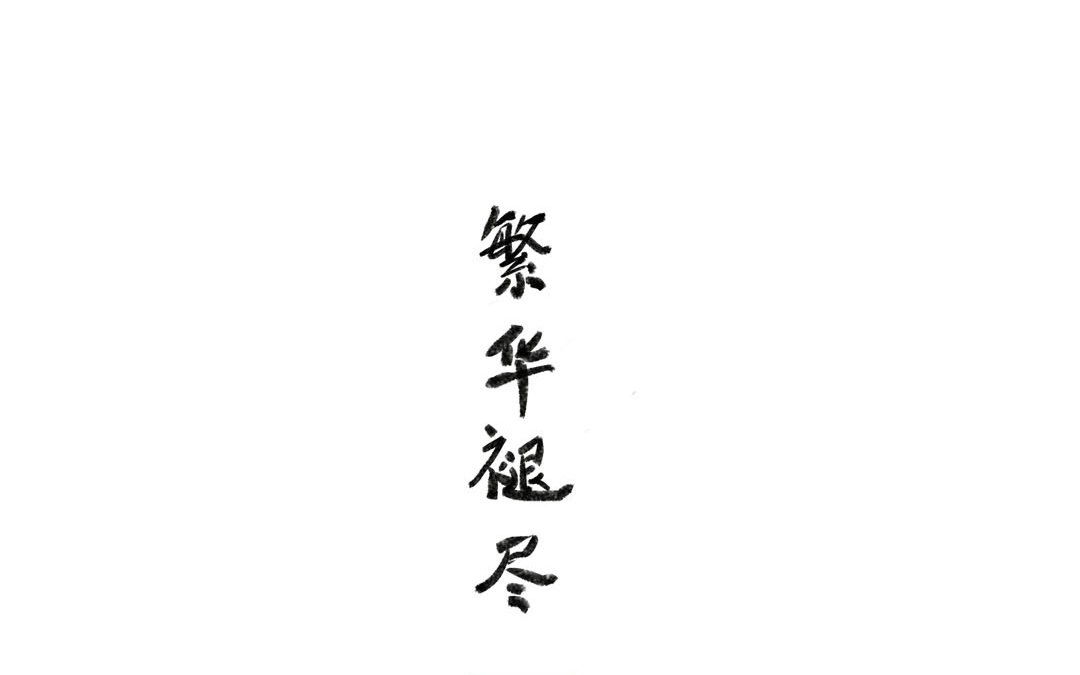 繁华褪尽